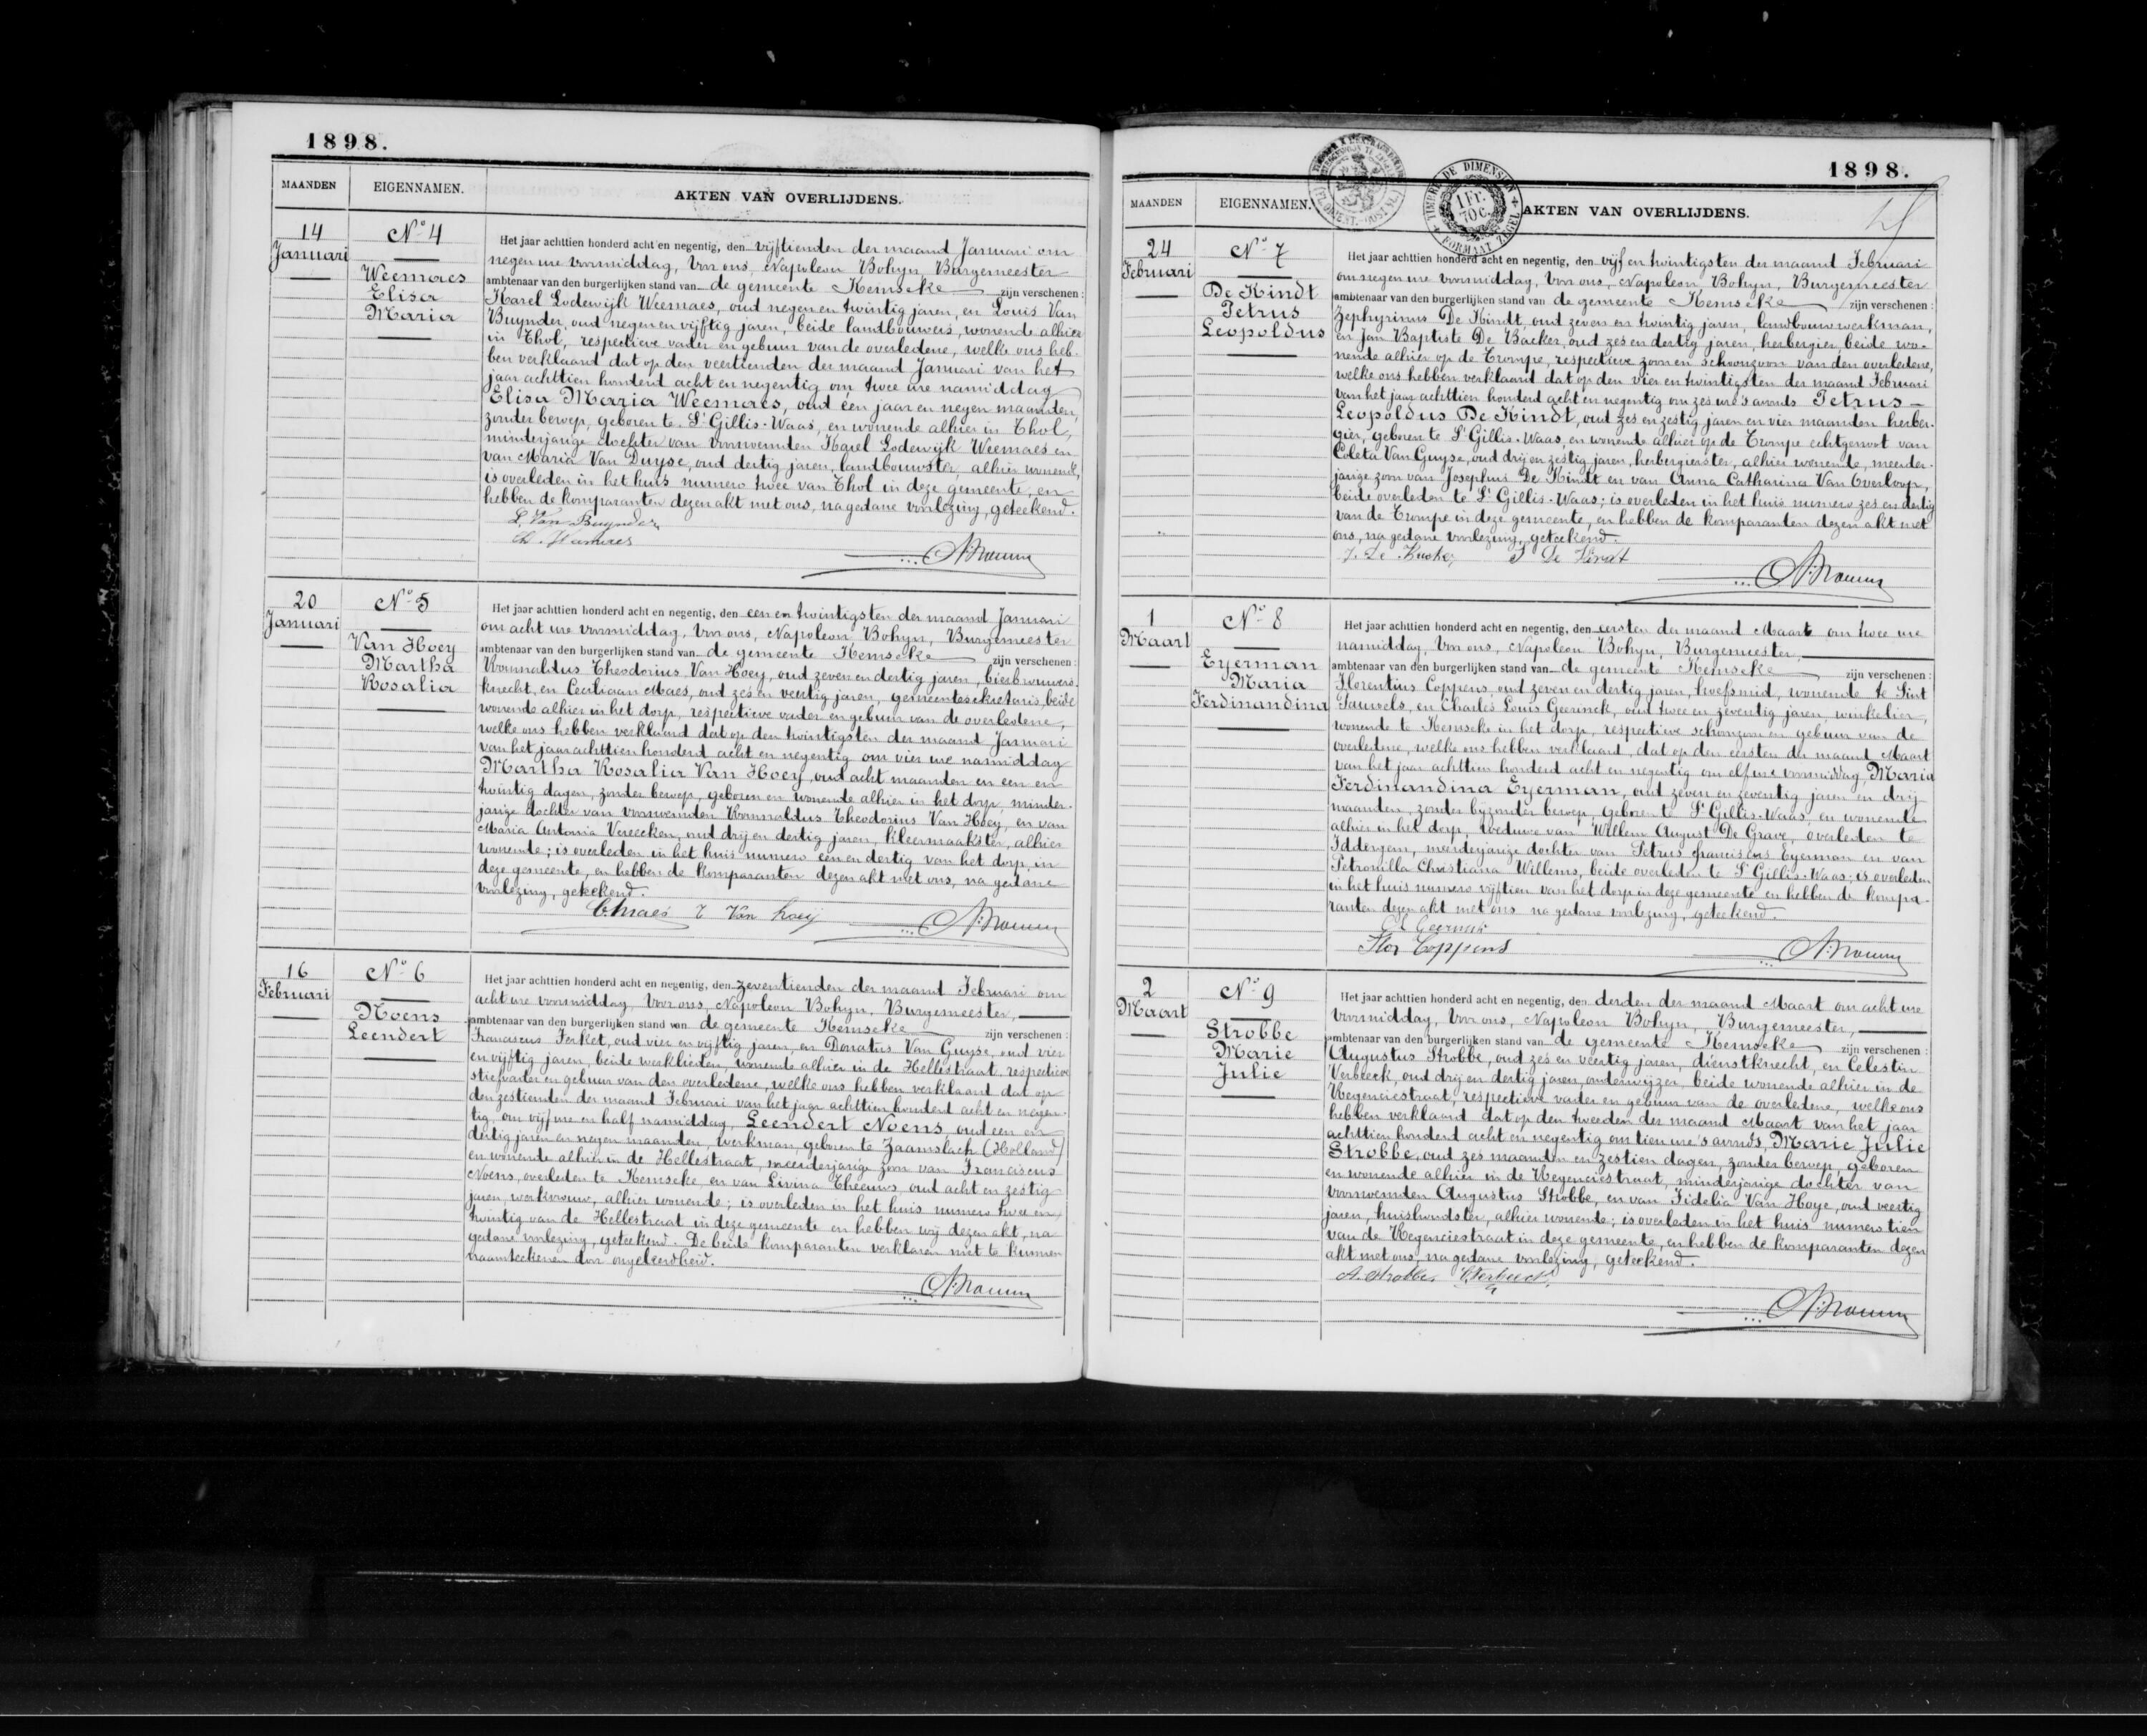 1898.
MAANDEN
EIGENNAMEN.
AKTEN VAN OVERLIJDENS.
14
Januari
No 4
Weemaes
Elisa
Maria
Het jaar achttien honderd acht en negentig, den vijftienden der maand Januari om
negen ure voormiddag, Voor ons, Napoleon Bohyn, Burgemeester
ambtenaar van den burgerlijken stand van de gemeente Kemseke zijn verschenen:
Karel Lodewijk Weemaes, oud negen en twintig jaren, en Louis Van
Buynder, oud negen en vijftig jaren, beide landbouwers, wonende alhier
in Thol, respectieve vader en gebuur van de overledene, welke ons heb-
ben verklaard dat op den veertienden der maand Januari van het
jaar achttien honderd acht en negentig om twee ure namiddag
Elisa Maria Weemaes, oud één jaar en negen maanden,
zonder beroep, geboren te St Gillis-Waas, en wonende alhier in Thol,
minderjarige dochter van voornoemden Karel Lodewijk Weemaes en
van Maria Van Duyse, oud dertig jaren, landbouwster, alhier wonende,
is overleden in het huis numero twee van Thol in deze gemeente, en
hebben de komparanten dezen akt met ons, na gedane voorlezing, geteekend.
L. Van Buynder
20
Januari
No 5
Van Hoey
Martha
Rosalia
Het jaar achttien honderd acht en negentig, den een en twintigsten der maand Januari
om acht ure voormiddag, Voor ons, Napoleon Bohyn, Burgemeester
ambtenaar van den burgerlijken stand van de gemeente Kemseke zijn verschenen:
Theodorius Van Hoey, oud zeven en dertig jaren, bierbrouwers-
knecht, en Ceciliaan Maes, oud zes en veertig jaren, gemeentesekretaris, beide
wonende alhier in het dorp, respectieve vader en gebuur van de overledene,
welke ons hebben verklaard dat op den twintigsten der maand Januari
van het jaar achttien honderd acht en negentig om vier ure namiddag
Martha Rosalia Van Hoey, oud acht maanden en een en
twintig dagen, zonder beroep, geboren en wonende alhier in het dorp, minder-
jarige dochter van voornoemden Theodorius Van Hoey, en van
Maria Antonia Vereecken, oud drij en dertig jaren, kleermaakster, alhier
wonende; is overleden in het huis numero een en dertig van het dorp in
deze gemeente, en hebben de komparanten dezen akt met ons, na gedane
voorlezing, geteekend.
C. Maes T Van hoey
16
Februari
No 6
Noens
Leendert
Het jaar achttien honderd acht en negentig, den zeventienden der maand Februari om
acht ure voormiddag, Voor ons, Napoleon Bohyn, Burgemeester,
ambtenaar van den burgerlijken stand van de gemeente Kemseke zijn verschenen:
Franciscus Ferket, oud vier en vijftig jaren, en Donatus Van Guyse, oud vier
en vijftig jaren, beide werklieden, wonende alhier in de Hellestraat, respectieve
stiefvader en gebuur van den overledene, welke ons hebben verklaard dat op
den zestienden der maand Februari van het jaar achttien honderd acht en negen-
tig, om vijf ure en half namiddag, Leendert Noens, oud een en
dertig jaren en negen maanden, werkman, geboren te Zaamslach (Holland)
en wonende alhier in de Hellestraat, meerderjarige zoon van Franciscus
Noens, overleden te Kemseke, en van Livina Theeuws oud acht en zestig
jaren, werkvrouw, alhier wonende; is overleden in het huis numero twee en
twintig van de Hellestraat in deze gemeente en hebben wij dezen akt, na
gedane voorlezing, geteekend. De beide komparanten verklaren niet te kunnen
naamteekenen door ongeleerdheid.
1898.
TIMBRE DE DIMENSION
1 Fr.
70 c.
FORMAAT ZEGEL
MAANDEN
EIGENNAMEN.
AKTEN VAN OVERLIJDENS.
24
Februari
No 7
De Kindt
Petrus
Leopoldus
Het jaar achttien honderd acht en negentig, den vijf en twintigsten der maand Februari
om negen ure voormiddag, Voor ons, Napoleon Bohyn, Burgemeester
ambtenaar van den burgerlijken stand van de gemeente Kemseke zijn verschenen:
Zephyrinus De Kindt, oud zeven en twintig jaren, landbouwwerkman,
en Jan Baptiste De Backer, oud zes en dertig jaren, herbergier, beide wo-
nende alhier op de Trompe, respectieve zoon en schoonzoon van den overledene,
welke ons hebben verklaard dat op den vier en twintigsten der maand Februari
van het jaar achttien honderd acht en negentig om zes ure 's avonds Petrus-
Leopoldus De Kindt, oud zes en zestig jaren en vier maanden herber-
gier, geboren te St Gillis-Waas, en wonende alhier op de Trompe echtgenoot van
Coleta Van Guyse, oud drij en zestig jaren, herbergierster, alhier wonende, meerder-
jarige zoon van Josephus De Kindt en van Anna Catharina Van Overloop,
beide overleden te St Gillis-Waas; is overleden in het huis numero zes en dertig
van de Trompe in deze gemeente, en hebben de komparanten dezen akt met
ons, na gedane voorlezing, geteekend.
De Kindt
1
Maart
No 8
Eyerman
Maria
Ferdinandina
Het jaar achttien honderd acht en negentig, den eersten der maand Maart om twee ure
namiddag, Voor ons, Napoleon Bohyn, Burgemeester,
ambtenaar van den burgerlijken stand van de gemeente Kemseke zijn verschenen:
Florentius Coppens, oud zeven en dertig jaren, hoefsmid, wonende te Sint
Pauwels, en Charles Louis Geerinck, oud twee en zeventig jaren, winkelier,
wonende te Kemseke in het dorp, respectieve schoonzoon en gebuur van de
overledene, welke ons hebben verklaard, dat op den eersten der maand Maart
van het jaar achttien honderd acht en negentig om elf ure voormiddag, Maria
Ferdinandina Eyerman, oud zeven en zeventig jaren en drij
maanden, zonder bijzonder beroep, geboren te St Gillis-Waas, en wonende
alhier in het dorp, weduwe van Willem August De Grave, overleden te
Iddergem, meerderjarige dochter van Petrus franciscus Eyerman en van
Petronilla Christiana Willems, beide overleden te St Gillis-Waas; is overleden
in het huis numero vijftien van het dorp in deze gemeente en hebben de kompa-
ranten dezen akt met ons na gedane voorlezing, geteekend.
Flor Coppens
2
Maart
No 9
Strobbe
Marie
Julie
Het jaar achttien honderd acht en negentig, den derden der maand Maart om acht ure
voormiddag, Voor ons, Napoleon Bohyn, Burgemeester,
ambtenaar van den burgerlijken stand van de gemeente Kemseke zijn verschenen:
Augustus Strobbe, oud zes en veertig jaren, dienstknecht, en Celestin
Verbeeck, oud drij en dertig jaren, onderwijzer, beide wonende alhier in de
Regenciestraat, respectieve vader en gebuur van de overledene, welke ons
hebben verklaard dat op den tweeden der maand Maart van het jaar
achttien honderd acht en negentig om tien ure 's avonds, Marie Julie
Strobbe, oud zes maanden en zestien dagen, zonder beroep, geboren
en wonende alhier in de Regenciestraat, minderjarige dochter van
voornoemden Augustus Strobbe, en van Fidelia Van Hoye, oud veertig
jaren, huishoudster, alhier wonende; is overleden in het huis numero tien
van de Regenciestraat in deze gemeente, en hebben de komparanten dezen
akt met ons, na gedane voorlezing, geteekend.
A. Strobbe Verbeeck